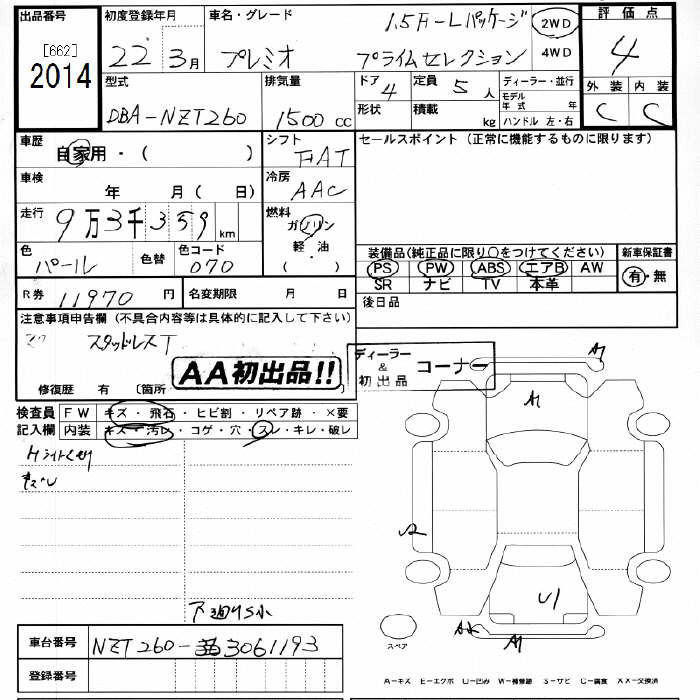 出品番号
[662]
2014
初度登録年月
22年3月
車名・グレード
1.5F-Lパッケージ
プレミオ プライムセレクション
2WD
4WD
評価点
4
外装 内装
C C
型式
DBA-NZT260
排気量
1500cc
ドア 4
定員 5人
形状
積載 kg
ディーラー・並行
モデル年式 年
ハンドル 左・右
車歴
自家用・( )
シフト
FAT
セールスポイント(正常に機能するものに限ります)
車検
年 月( 日)
冷房
AAC
走行
9万3千359km
燃料
ガソリン
軽・油
( ・ )
色
パール
色替
色コード
070
装備品(純正品に限り○をつけてください)
PS PW ABS エアB AW
SR ナビ TV 本革
新車保証書
有・無
R券 11970円
名変期限 月 日
後日品
注意事項申告欄(不具合内容等は具体的に記入して下さい)
スタッドレスT
AA初出品!!
ディーラー
&
初出品
コーナー
修復歴 有 〔箇所
検査員
記入欄
FW キズ・飛石・ヒビ割・リペア跡・×要
内装 キズ・汚レ・コゲ・穴・スレ・キレ・破レ
Hライトくもり
下廻りS小
A1
A1
U1
A2
A1
スペア
車台番号
NZT260-3061193
登録番号
A－キズ E－エクボ U－凹み W－補修跡 S－サビ C－腐食 XX－交換済